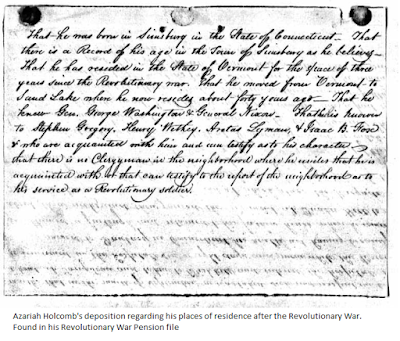 That he was born in Simsbury in the State of Connecticut - That
there is a Record of his age in the Town of Simsbury as he believes -
That he has resided in the State of Vermont for the space of three
years since the Revolutionary war. That he moved from Vermont to
Sand Lake where he now resides about forty years ago - That he
knew Gen. George Washington & General Nixon - That he is known
to Stephen Gregory, Henry Aratus Lyman, & Isaac B. Fox
& who are acquainted with him and can testify as to his character
that there is no Clergyman in the neighborhood where he that he is
acquainted with or that can testify to the report of the neighborhood as to
his service as a Revolutionary soldier.
Azariah Holcomb's deposition regarding his places of residence after the Revolutionary War.
Found in his Revolutionary War Pension file